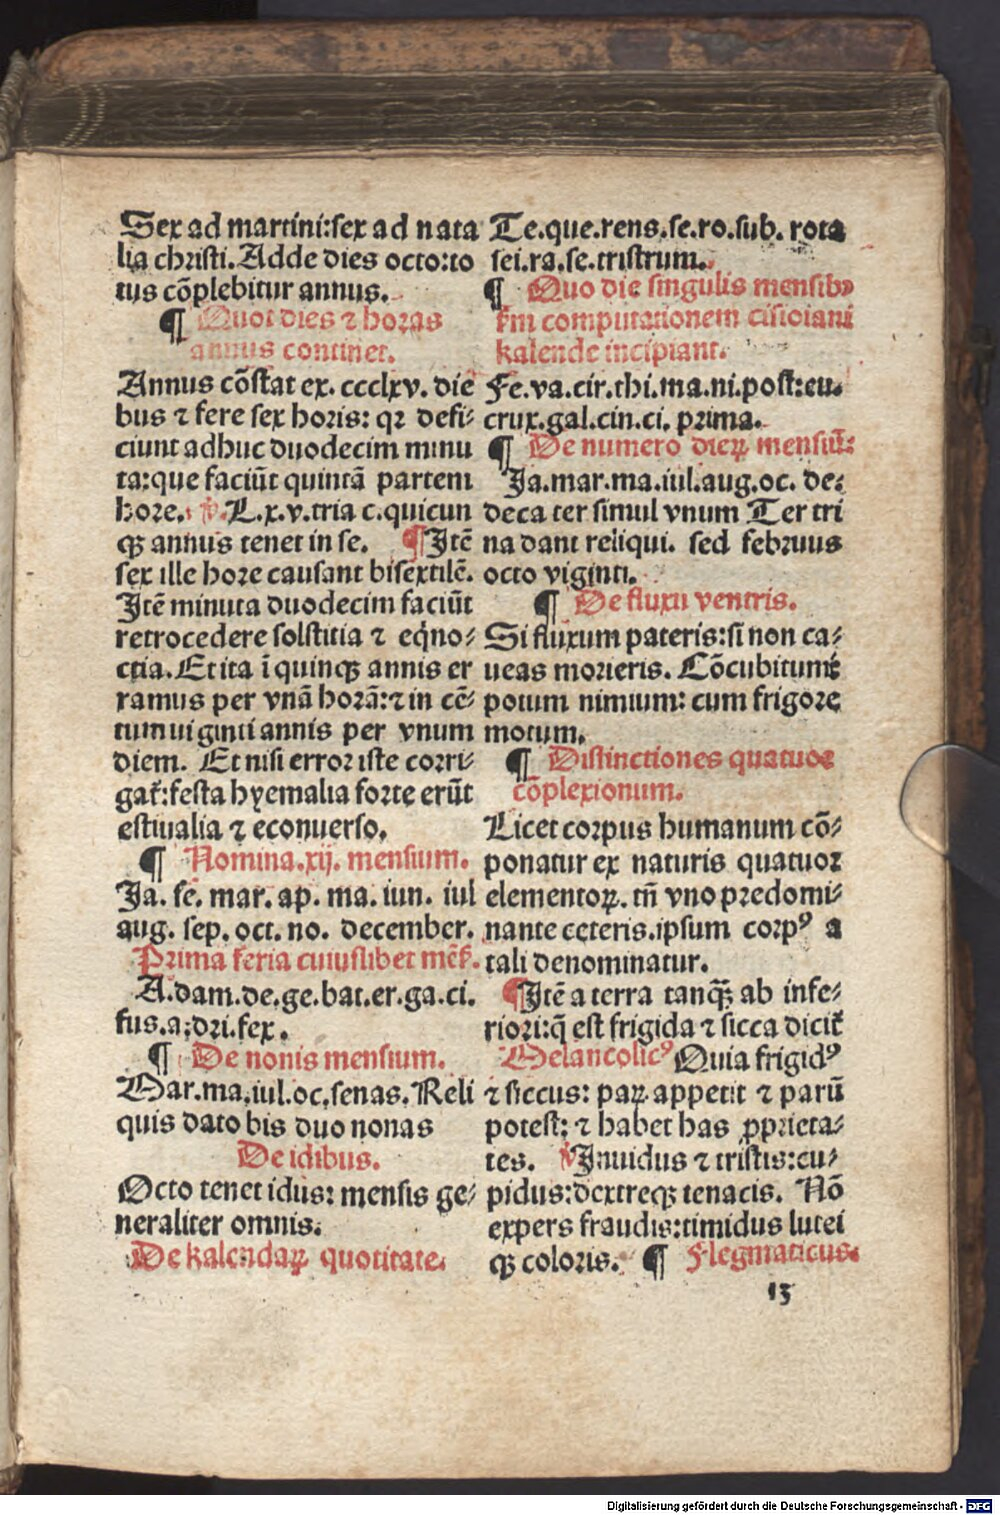 Sex ad martini:sex ad nata
lia christi. Adde dies octo:to
tus cōplebitur annus.
¶ Quot dies ⁊ horas
annus continet.
Annus cōstat ex. ccclxv. die
bus ⁊ fere sex horis: qꝛ defi⸗
ciunt adhuc duodecim minu
ta:que faciūt quintā partem
hore. ℣. L.x.v.tria c.quicun
qꝫ annus tenet in se. ¶ Itē
sex ille hore causant bisextilē.
Itē minuta duodecim faciūt
retrocedere solstitia ⁊ eq̇no⸗
ctia. Et ita ī quinqꝫ annis er
ramus per vnā horā:⁊ in cē⸗
tum viginti annis per vnum
diem. Et nisi error iste corri⸗
gat̄:festa hyemalia forte erūt
estiualia ⁊ econuerso.
¶ Nomina.xij. mensium.
Ja. fe. mar. ap. ma. iun. iul
aug. sep. oct. no. december.
Prima feria cuiuslibet mēs̄.
A.dam.de.ge.bat.er.ga.ci.
fus.a;dri.fex.
¶ De nonis mensium.
Mar.ma.iul.oc.senas. Reli
quis dato bis duo nonas
De idibus.
Octo tenet idus: mensis ge⸗
neraliter omnis.
De kalendaꝝ quotitate.
Te.que.rens.se.ro.sub. rota
sei.ra.se.tristrum.
¶ Quo die singulis mensibꝰ
km̄ computationem cisioiani
kalende incipiant.
Fe.va.cir.thi.ma.ni.post:eu.
crux.gal.cin.ci. prima.
¶ De numero dieꝝ mensiū:
Ja.mar.ma.iul.aug.oc. de⸗
deca ter simul vnum Ter tri
na dant reliqui. sed februus
octo viginti.
¶ De fluxu ventris.
Si fluxum pateris:si non ca⸗
ueas morieris. Cōcubitum:
potum nimium: cum frigore
motum.
¶ Distinctiones quatuor
cōplexionum.
Licet corpus humanum cō⸗
ponatur ex naturis quatuor
elementoꝝ. tn̄ vno predomi⸗
nante ceteris.ipsum corpꝰ a
tali denominatur.
¶ Itē a terra tanqꝫ ab infe⸗
riori:q̄ est frigida ⁊ sicca dicit̄
Melancolicꝰ Quia frigidꝰ
⁊ siccus: paꝝ appetit ⁊ parū
potest: ⁊ habet has ꝓprieta⸗
tes. ℣ Inuidus ⁊ tristis:cu⸗
pidus:dextreqꝫ tenacis. Nō
expers fraudis:timidus lutei
qꝫ coloris. ¶ Flegmaticus.
13
Digitalisierung gefördert durch die Deutsche Forschungsgemeinschaft - DFG